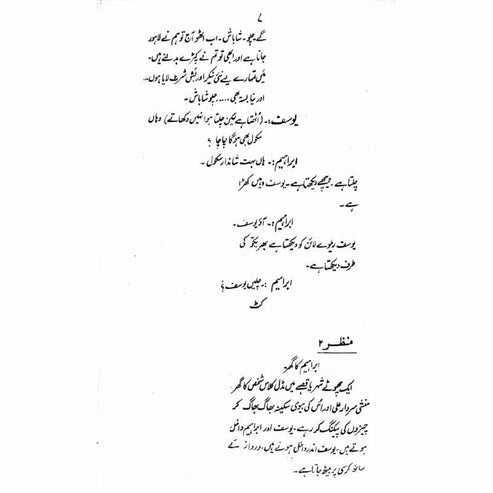 ۷
گے چلو۔ شاباش۔ اب اٹھو آج تو ہم نے لاہور
جانا ہے اور ابھی تو تم نے کپڑے بدلنے ہیں۔
میں تمہارے لیے نئی نیکر اور بُش شرٹ لایا ہوں۔۔
اور نیا بستہ بھی ۔۔۔۔۔ چلو شاباش۔
یوسف :۔ (اُٹھتا ہے لیکن چلتا ہوا نہیں دکھاتے) وہاں
سکول بھی ہوگا چاچا ؟
ابراہیم :۔ ہاں بہت شاندار سکول۔
چلتا ہے۔ پیچھے دیکھتا ہے۔ یوسف وہیں کھڑا
ہے۔
ابراہیم :۔ آؤ یوسف۔
یوسف ریلوے لائن کو دیکھتا ہے پھر کی
طرف دیکھتا ہے۔
ابراہیم :۔ چلیں یوسف ؟
کٹ
منظر ۲
ابراہیم کا گھر
ایک چھوٹے شہر یا قصبے میں مڈل کلاس شخص کا گھر
منشی سردار علی اور اُس کی بیوی سکینہ بھاگ بھاگ کر
چیزوں کی پیکنگ کر رہے۔ یوسف اور ابراہیم داخل
ہوتے ہیں۔ یوسف اندر داخل ہوتے ہیں۔ دروازے کے
ساتھ کرسی پر بیٹھ جاتا ہے۔